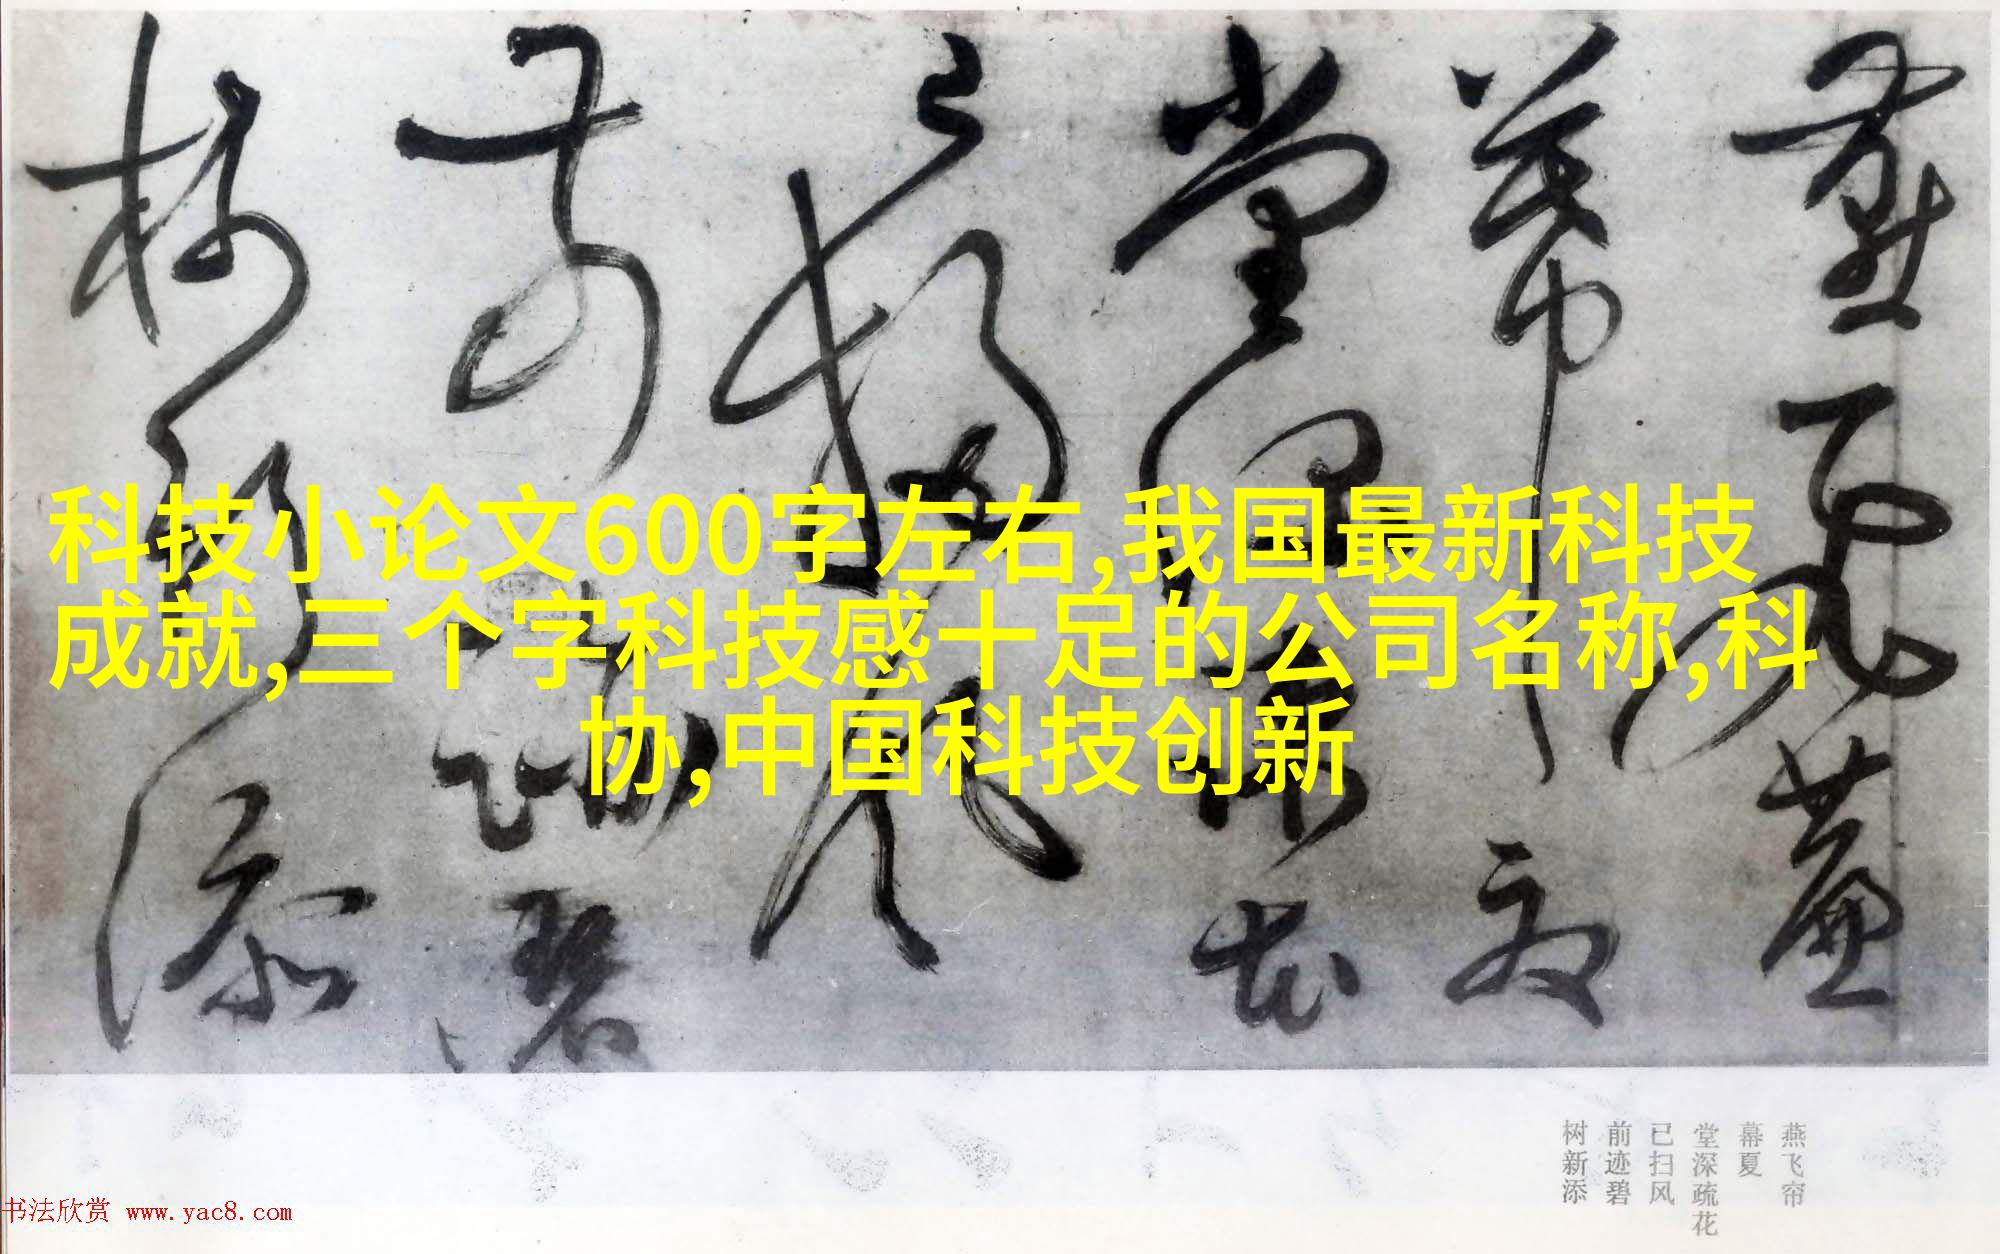 燕飛簾
幕夏
堂深疎花
已掃風
前迹碧
樹新添
科技小论文600字左右,我国最新科技
成就,三个字科技感十足的公司名称,科
协,中国科技创新
燕飞帘
幕夏
堂深疏花
已扫风
前迹碧
树新添
书法欣赏 www.yac8.com